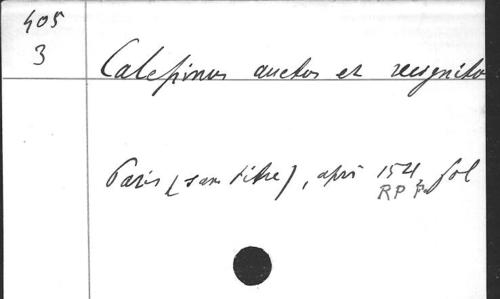 405
3
Calepinus auctus et recognitus
Paris [sans titre], après 154, fol
RP